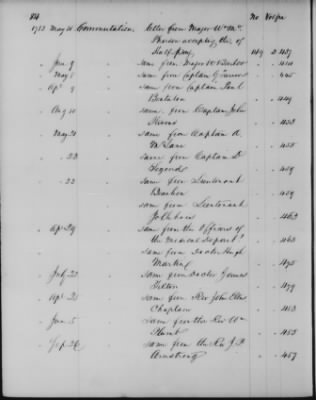 84 No Vol Pa
1783 May 26 Commutation. Letter from Major Wm Mc
accepting the of
Half pay 149 2 437
" June 9 same from Major W Barber " " 441
" May 1 same from Captain " " 445
" Apl 9 same from Captain Paul
" " 449
" Aug 10 same from Captain John
" " 453
" May 20 same from Captain A.
McLane " " 455
" " 23 same from Captain D
" " 459
" " 23 same from Lieutenant
" " 459
same from Lieutenant
" " 463
" Apl 29 same from the Officers of
the Medical Depart. " " 463
same from Doctor Hugh
Martin " " 475
" July 22 same from Doctor James
Tilton " " 479
" Apl 2 same from Rev John Ellis
Chaplain " " 453
" June 5 same from the Rev Wm
" " 453
" Sep 26 same from the Rev J F
Armstrong " " 457